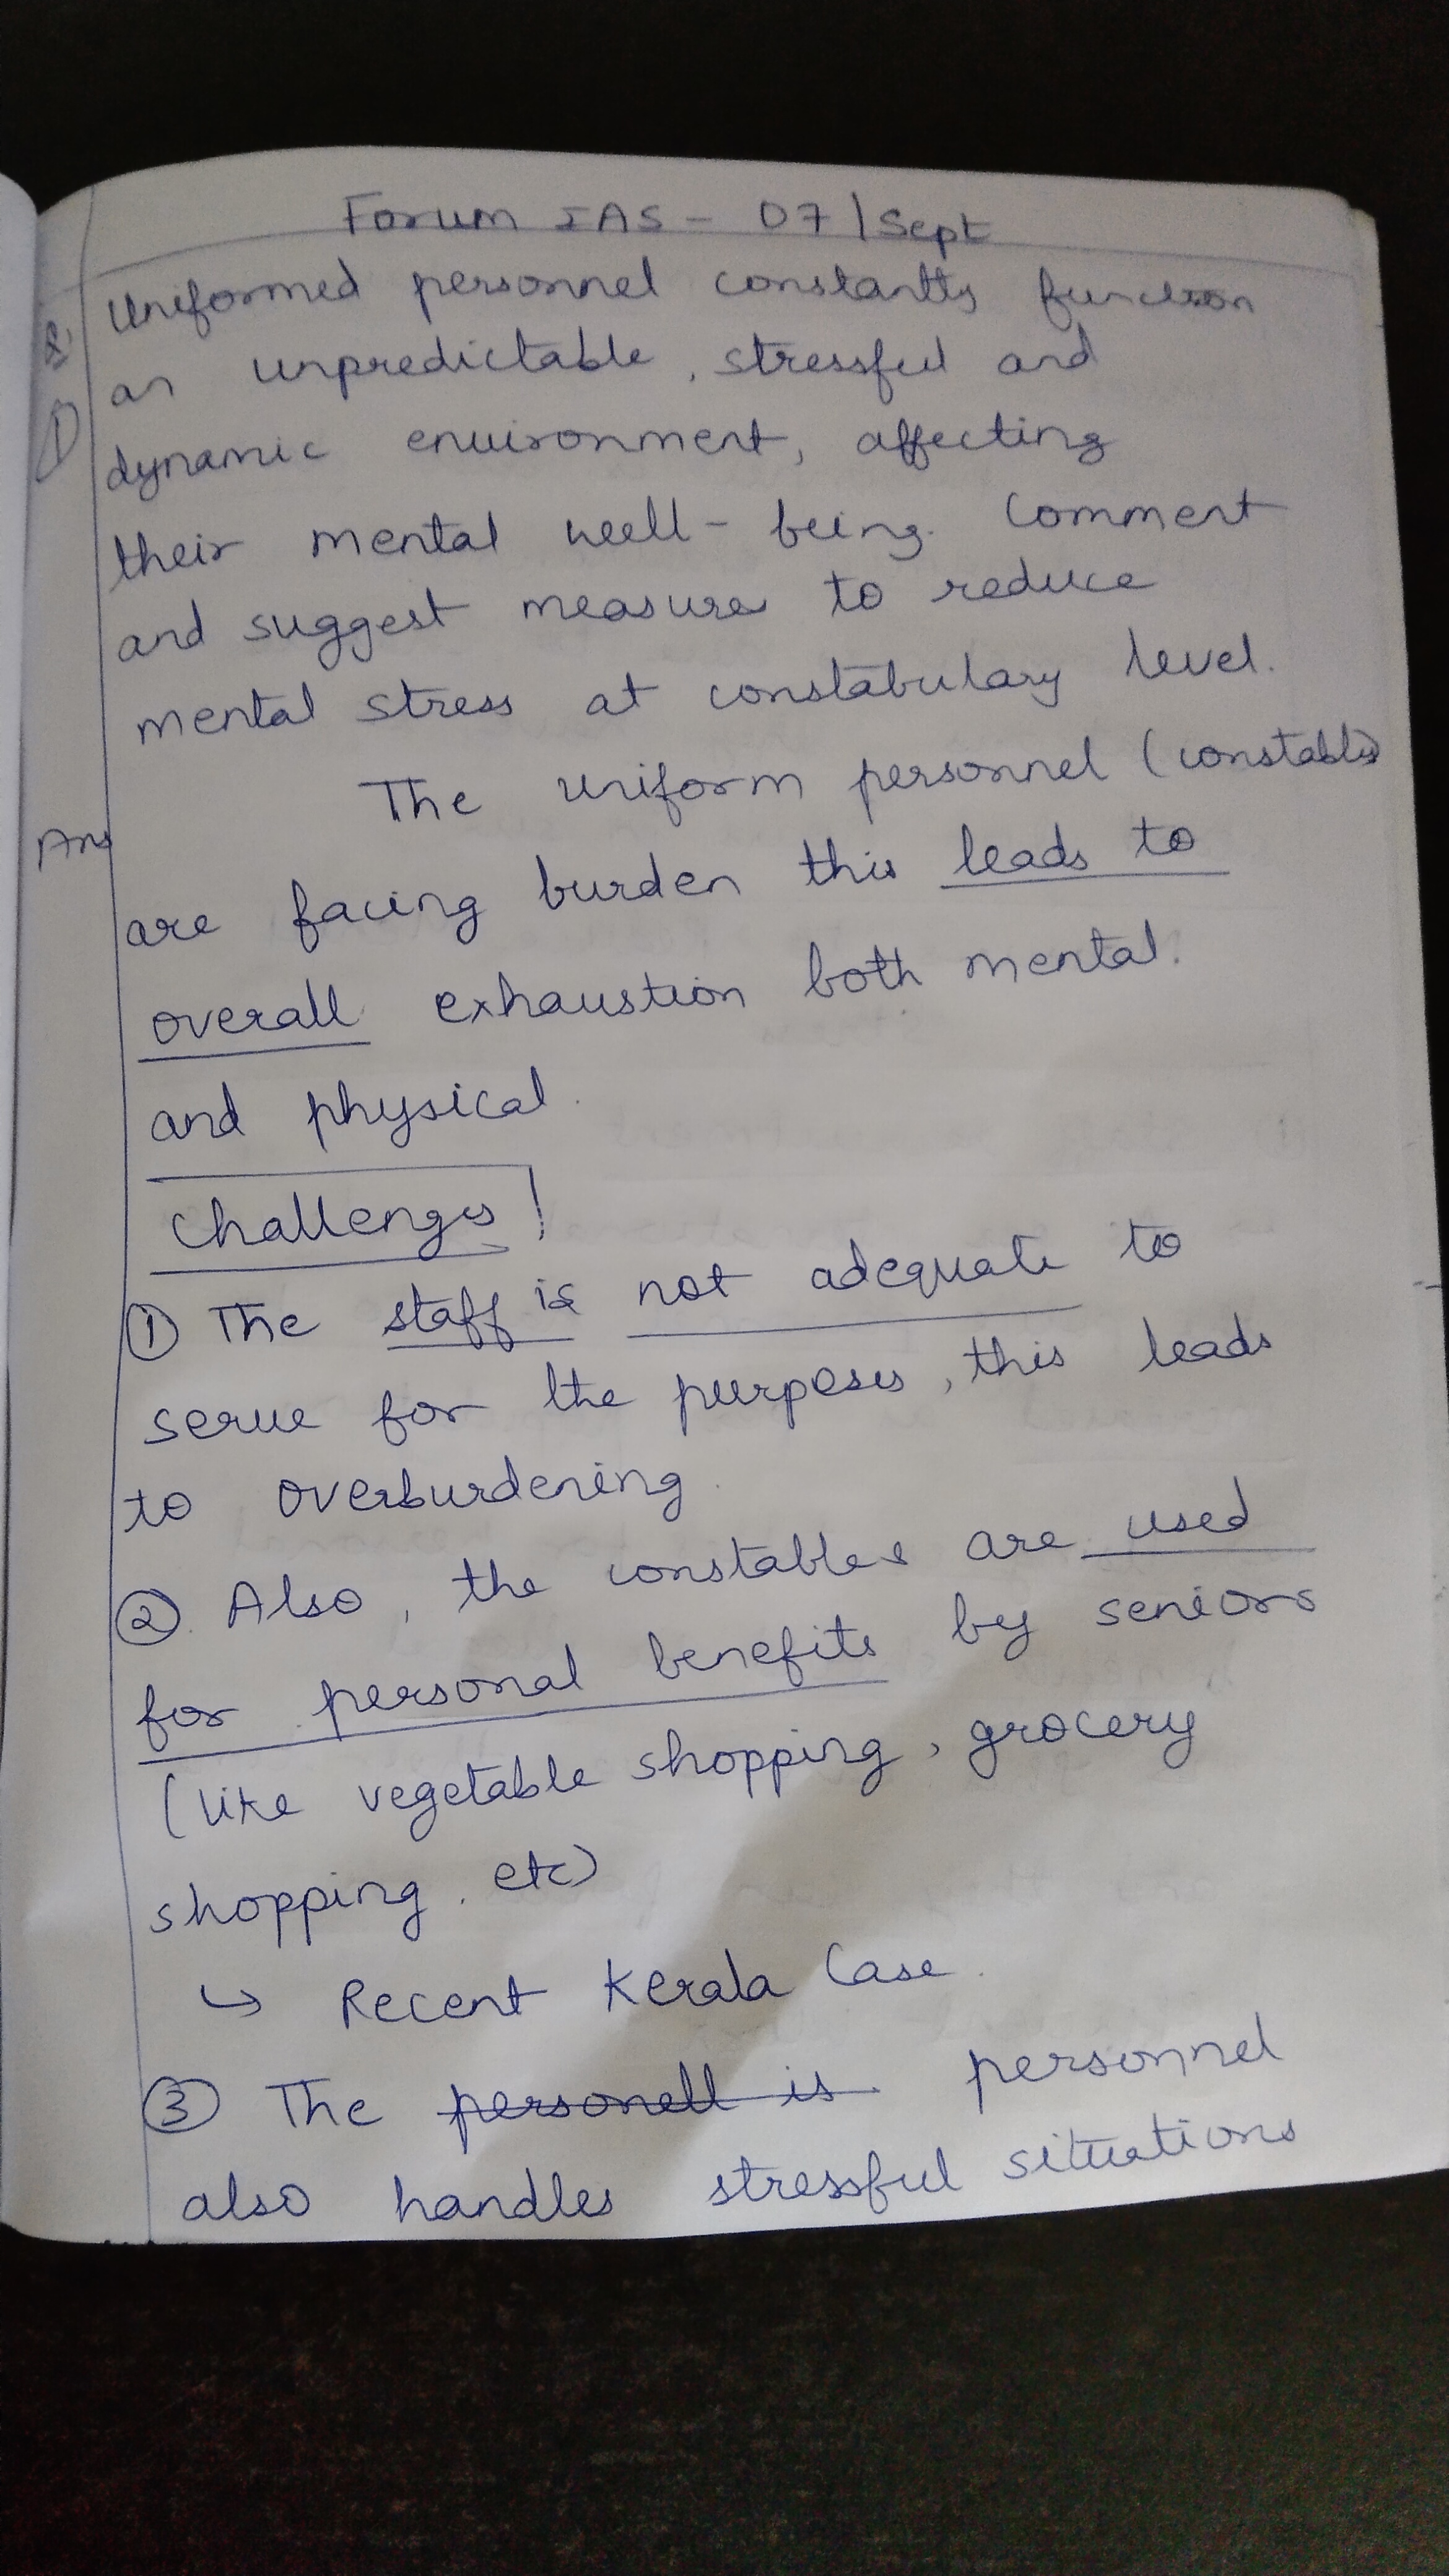 Forum IAS - 07/Sept
Q.
1) Uniformed personnel constantly function
an unpredictable, stressful and
dynamic environment, affecting
their mental well-being. Comment
and suggest measures to reduce
mental stress at constabulary level.
Ans The uniform personnel (constables)
are facing burden this leads to
overall exhaustion both mental.
and physical.
Challenges!
① The staff is not adequate to
serve for the purposes, this leads
to overburdening.
② Also, the constables are used
for personal benefits by seniors
(like vegetable shopping, grocery
shopping, etc)
↳ Recent Kerala Case.
③ The personell is personnel
also handles stressful situations